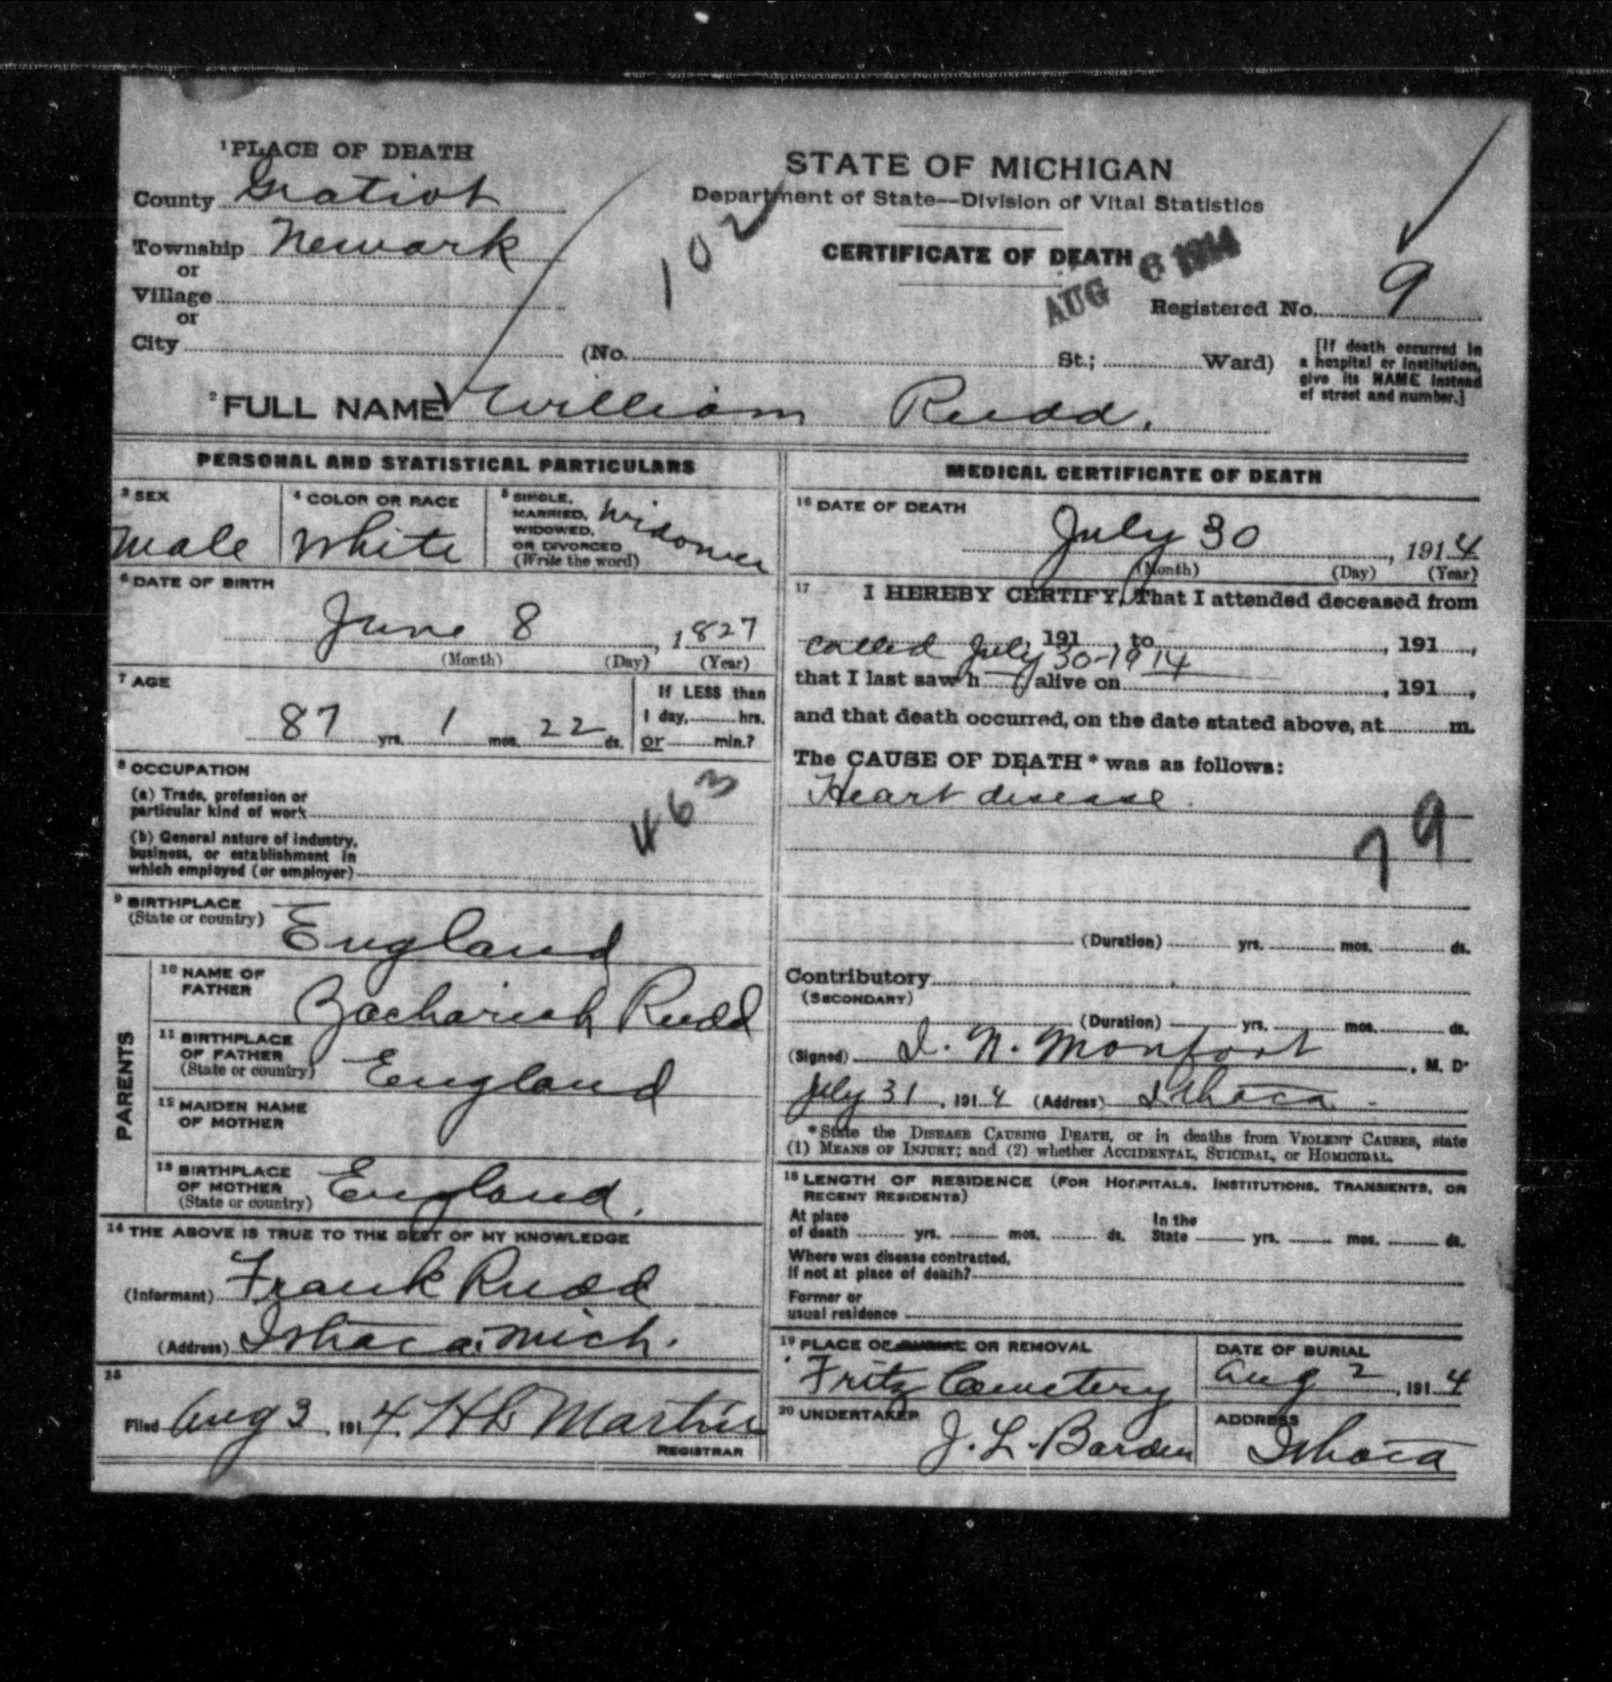 ¹PLACE OF DEATH
County Gratiot
Township Newark
or
Village
or
City
102
STATE OF MICHIGAN
Department of State—Division of Vital Statistics
CERTIFICATE OF DEATH
AUG 6 1914
Registered No. 9
(No. St.; Ward)
[If death occurred in
a hospital or institution,
give its NAME instead
of street and number.]
²FULL NAME William Rudd.
PERSONAL AND STATISTICAL PARTICULARS
³SEX
Male
⁴COLOR OR RACE
White
⁵SINGLE,
MARRIED,
WIDOWED,
OR DIVORCED
(Write the word)
Widower
⁶DATE OF BIRTH
June 8, 1827
(Month) (Day) (Year)
⁷AGE
87 yrs. 1 mos. 22 ds.
If LESS than
1 day, hrs.
or min.?
⁸OCCUPATION
(a) Trade, profession or
particular kind of work
(b) General nature of industry,
business, or establishment in
which employed (or employer)
463
⁹BIRTHPLACE
(State or country)
England
PARENTS
¹⁰NAME OF
FATHER
Zachariah Rudd
¹¹BIRTHPLACE
OF FATHER
(State or country)
England
¹²MAIDEN NAME
OF MOTHER
¹³BIRTHPLACE
OF MOTHER
(State or country)
England.
¹⁴THE ABOVE IS TRUE TO THE BEST OF MY KNOWLEDGE
(Informant) Frank Rudd
(Address) Ithaca. Mich.
¹⁵
Filed Aug 3, 1914. H Martin
REGISTRAR
MEDICAL CERTIFICATE OF DEATH
¹⁶DATE OF DEATH
July 30, 1914
(Month) (Day) (Year)
¹⁷ I HEREBY CERTIFY, That I attended deceased from
, 191 , to , 191 ,
called July 30-1914
that I last saw h alive on , 191 ,
and that death occurred, on the date stated above, at m.
The CAUSE OF DEATH* was as follows:
Heart disease.
79
(Duration) yrs. mos. ds.
Contributory
(SECONDARY)
(Duration) yrs. mos. ds.
(Signed) I. N. Monfort, M. D.
July 31, 1914 (Address) Ithaca.
*State the DISEASE CAUSING DEATH, or in deaths from VIOLENT CAUSES, state
(1) MEANS OF INJURY; and (2) whether ACCIDENTAL, SUICIDAL, or HOMICIDAL.
¹⁸LENGTH OF RESIDENCE (FOR HOSPITALS, INSTITUTIONS, TRANSIENTS, OR
RECENT RESIDENTS)
At place
of death yrs. mos. ds. In the
State yrs. mos. ds.
Where was disease contracted,
if not at place of death?
Former or
usual residence
¹⁹PLACE OF BURIAL OR REMOVAL
Fritz Cemetery
DATE OF BURIAL
Aug 2, 1914
²⁰UNDERTAKER
J. L. Barden
ADDRESS
Ithaca